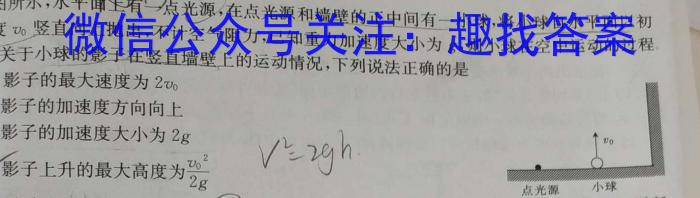 所示,水平面上有一点光源,在点光源和墙壁的正中间有一
度v₀竖直
关于小球的影子在竖直墙壁上的运动情况,下列说法正确的是
微信公众号关注:趣找答案
影子的最大速度为2v₀
影子的加速度方向向上
影子的加速度大小为2g
影子上升的最大高度为v₀²/2g
V²=2gh
v₀
点光源 小球